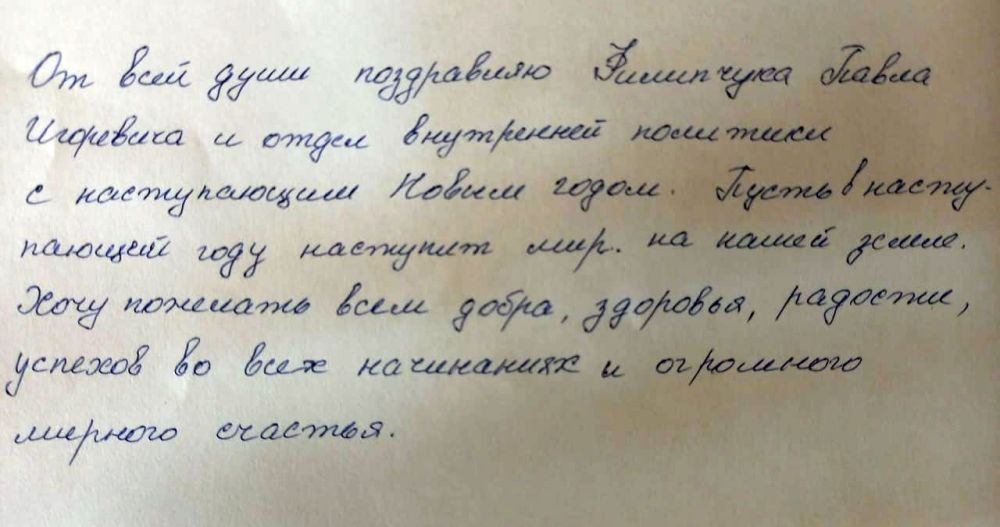 От всей души поздравляю Филипчука Павла
Игоревича и отдел внутренней политики
с наступающим Новым годом. Пусть в насту-
пающей году наступит мир. на нашей земле.
Хочу пожелать всем добра, здоровья, радости,
успехов во всех начинаниях и огромного
мирного счастья.